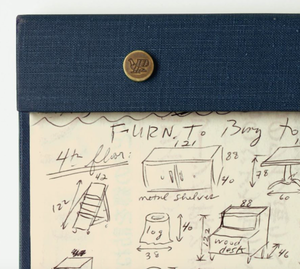 FURN. To Buy fo
4th floor:
121
88
40
42
122
metal shelves
78
60
log
40
38
88
122
wood desk
46
44